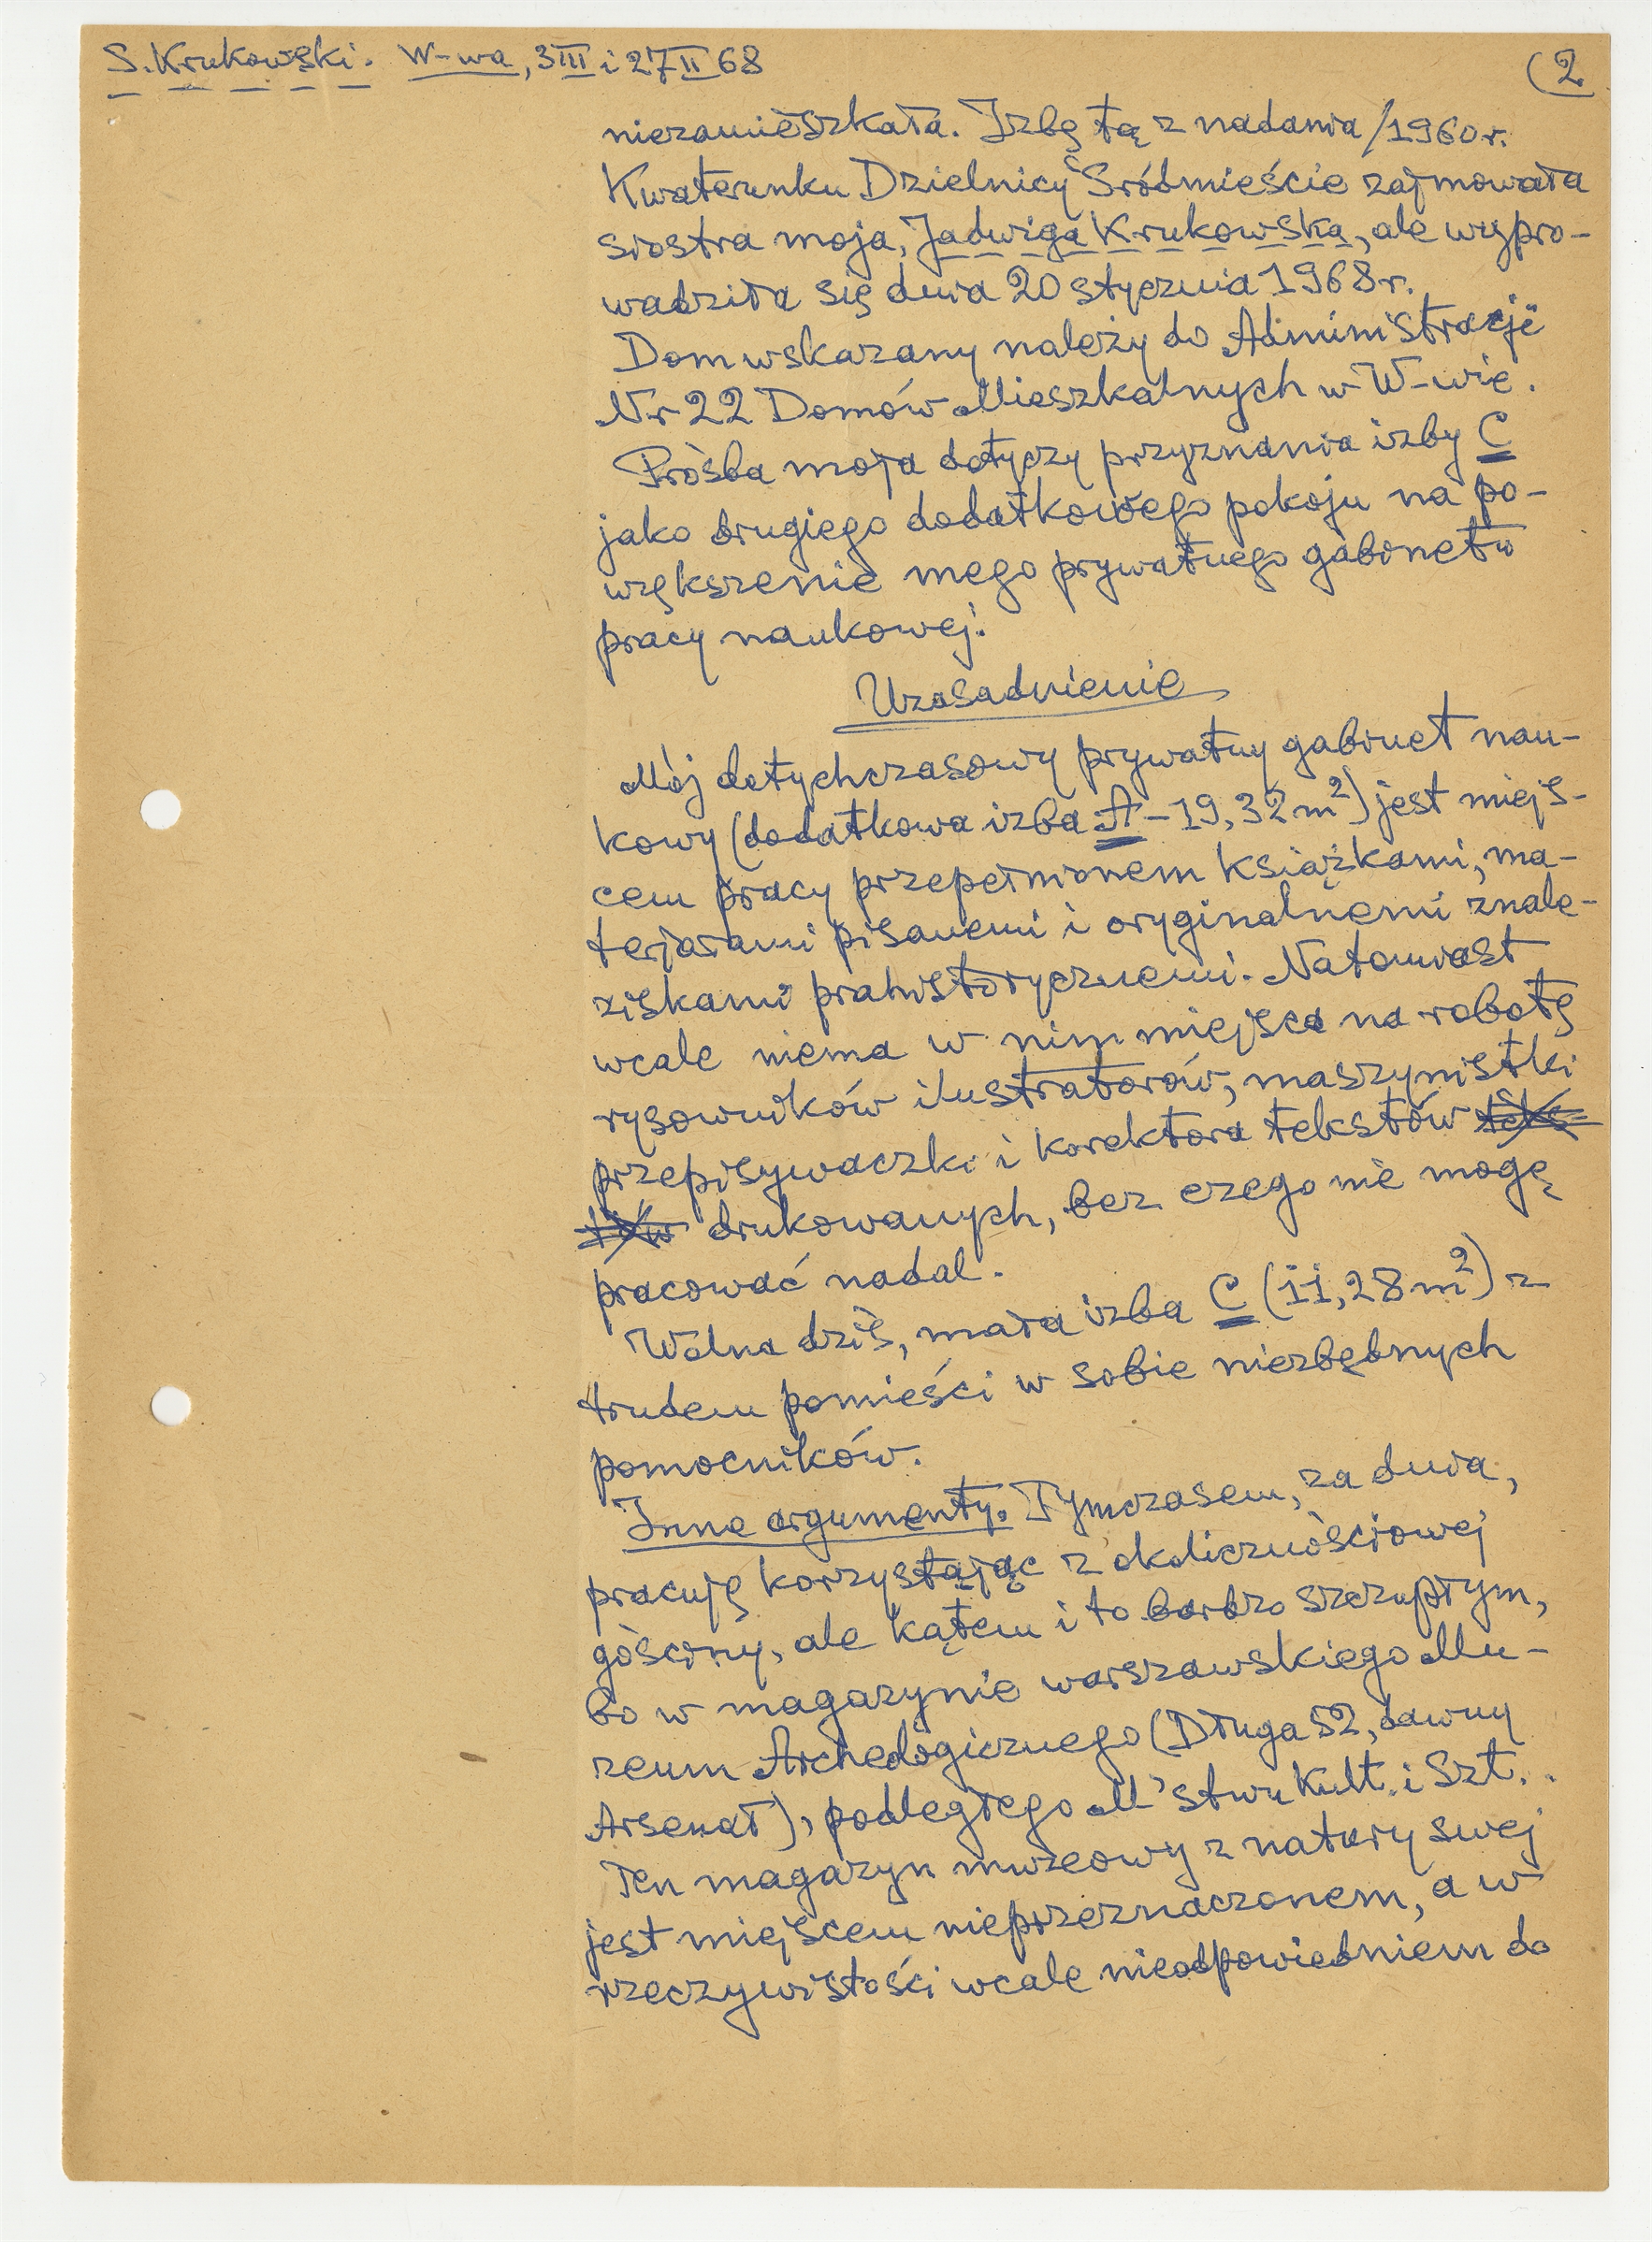 S. Krukowski. W-wa, 3 III i 27 II 68
(2
niezamieszkała. Izbę tą z nadania /1960 r.
Kwaterunku Dzielnicy Śródmieście zajmowała
siostra moja, Jadwiga Krukowska, ale wypro-
wadziła się dnia 20 stycznia 1968 r.
Dom wskazany należy do Administracji
Nr 22 Domów Mieszkalnych w W-wie.
Prośba moja dotyczy przyznania izby C
jako drugiego dodatkowego pokoju na po-
większenie mego prywatnego gabinetu
pracy naukowej.
Uzasadnienie
Mój dotychczasowy prywatny gabinet nau-
kowy (dodatkowa izba A – 19,32 m²) jest miejs-
cem pracy przepełnionem książkami, ma-
terjałami pisanemi i oryginalnemi znale-
ziskami prahistorycznemi. Natomiast
wcale niema w nim miejsca na robotę
rysowników ilustratorów, maszynistki
przepisywaczki i korektora tekstów teks-
tów drukowanych, bez czego nie mogę
pracować nadal.
Wolna dziś, mała izba C (11,28 m²) z
trudem pomieści w sobie niezbędnych
pomocników.
Inne argumenty. Tymczasem, za dnia,
pracuję korzystając z okolicznościowej
gościny, ale kątem i to bardzo szczupłym,
bo w magazynie warszawskiego Mu-
zeum Archeologicznego (Długa 52, dawny
Arsenał), podległego M'stwu Kult. i Szt.
Ten magazyn muzeowy z natury swej
jest miejscem nieprzeznaczonem, a w
rzeczywistości wcale nieodpowiedniem do